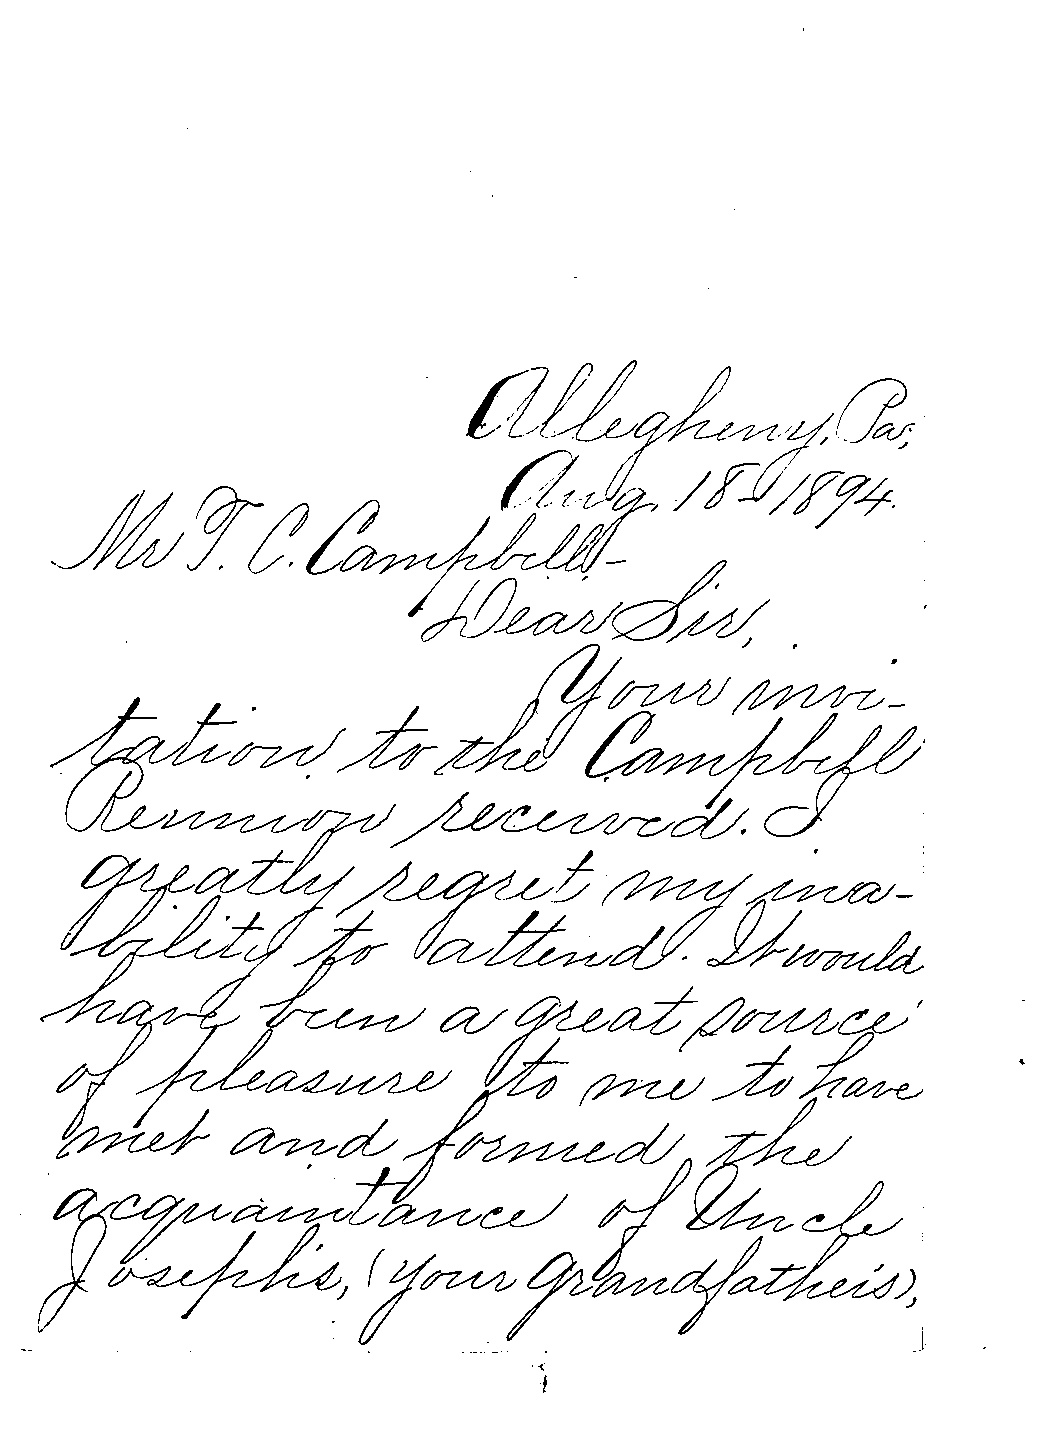 Allegheny, Pa,
Aug. 18-1894.
Mr T. C. Campbell-
Dear Sir,
Your invi-
tation to the Campbell
Reunion received. I
greatly regret my ina-
bility to attend. It would
have been a great source
of pleasure to me to have
met and formed the
acquaintance of Uncle
Joseph's, (your Grandfather's),